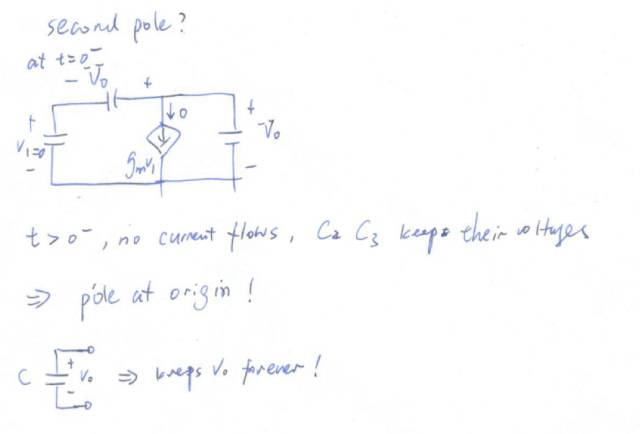 second pole?
at t=0⁻
− V₀ +
+ + 
V₁=0 ↓0 V₀
− gₘV₁ −
t>0⁻, no current flows, C₂ C₃ keeps their voltages
⇒ pole at origin!
+
C V₀ ⇒ keeps V₀ forever!
−